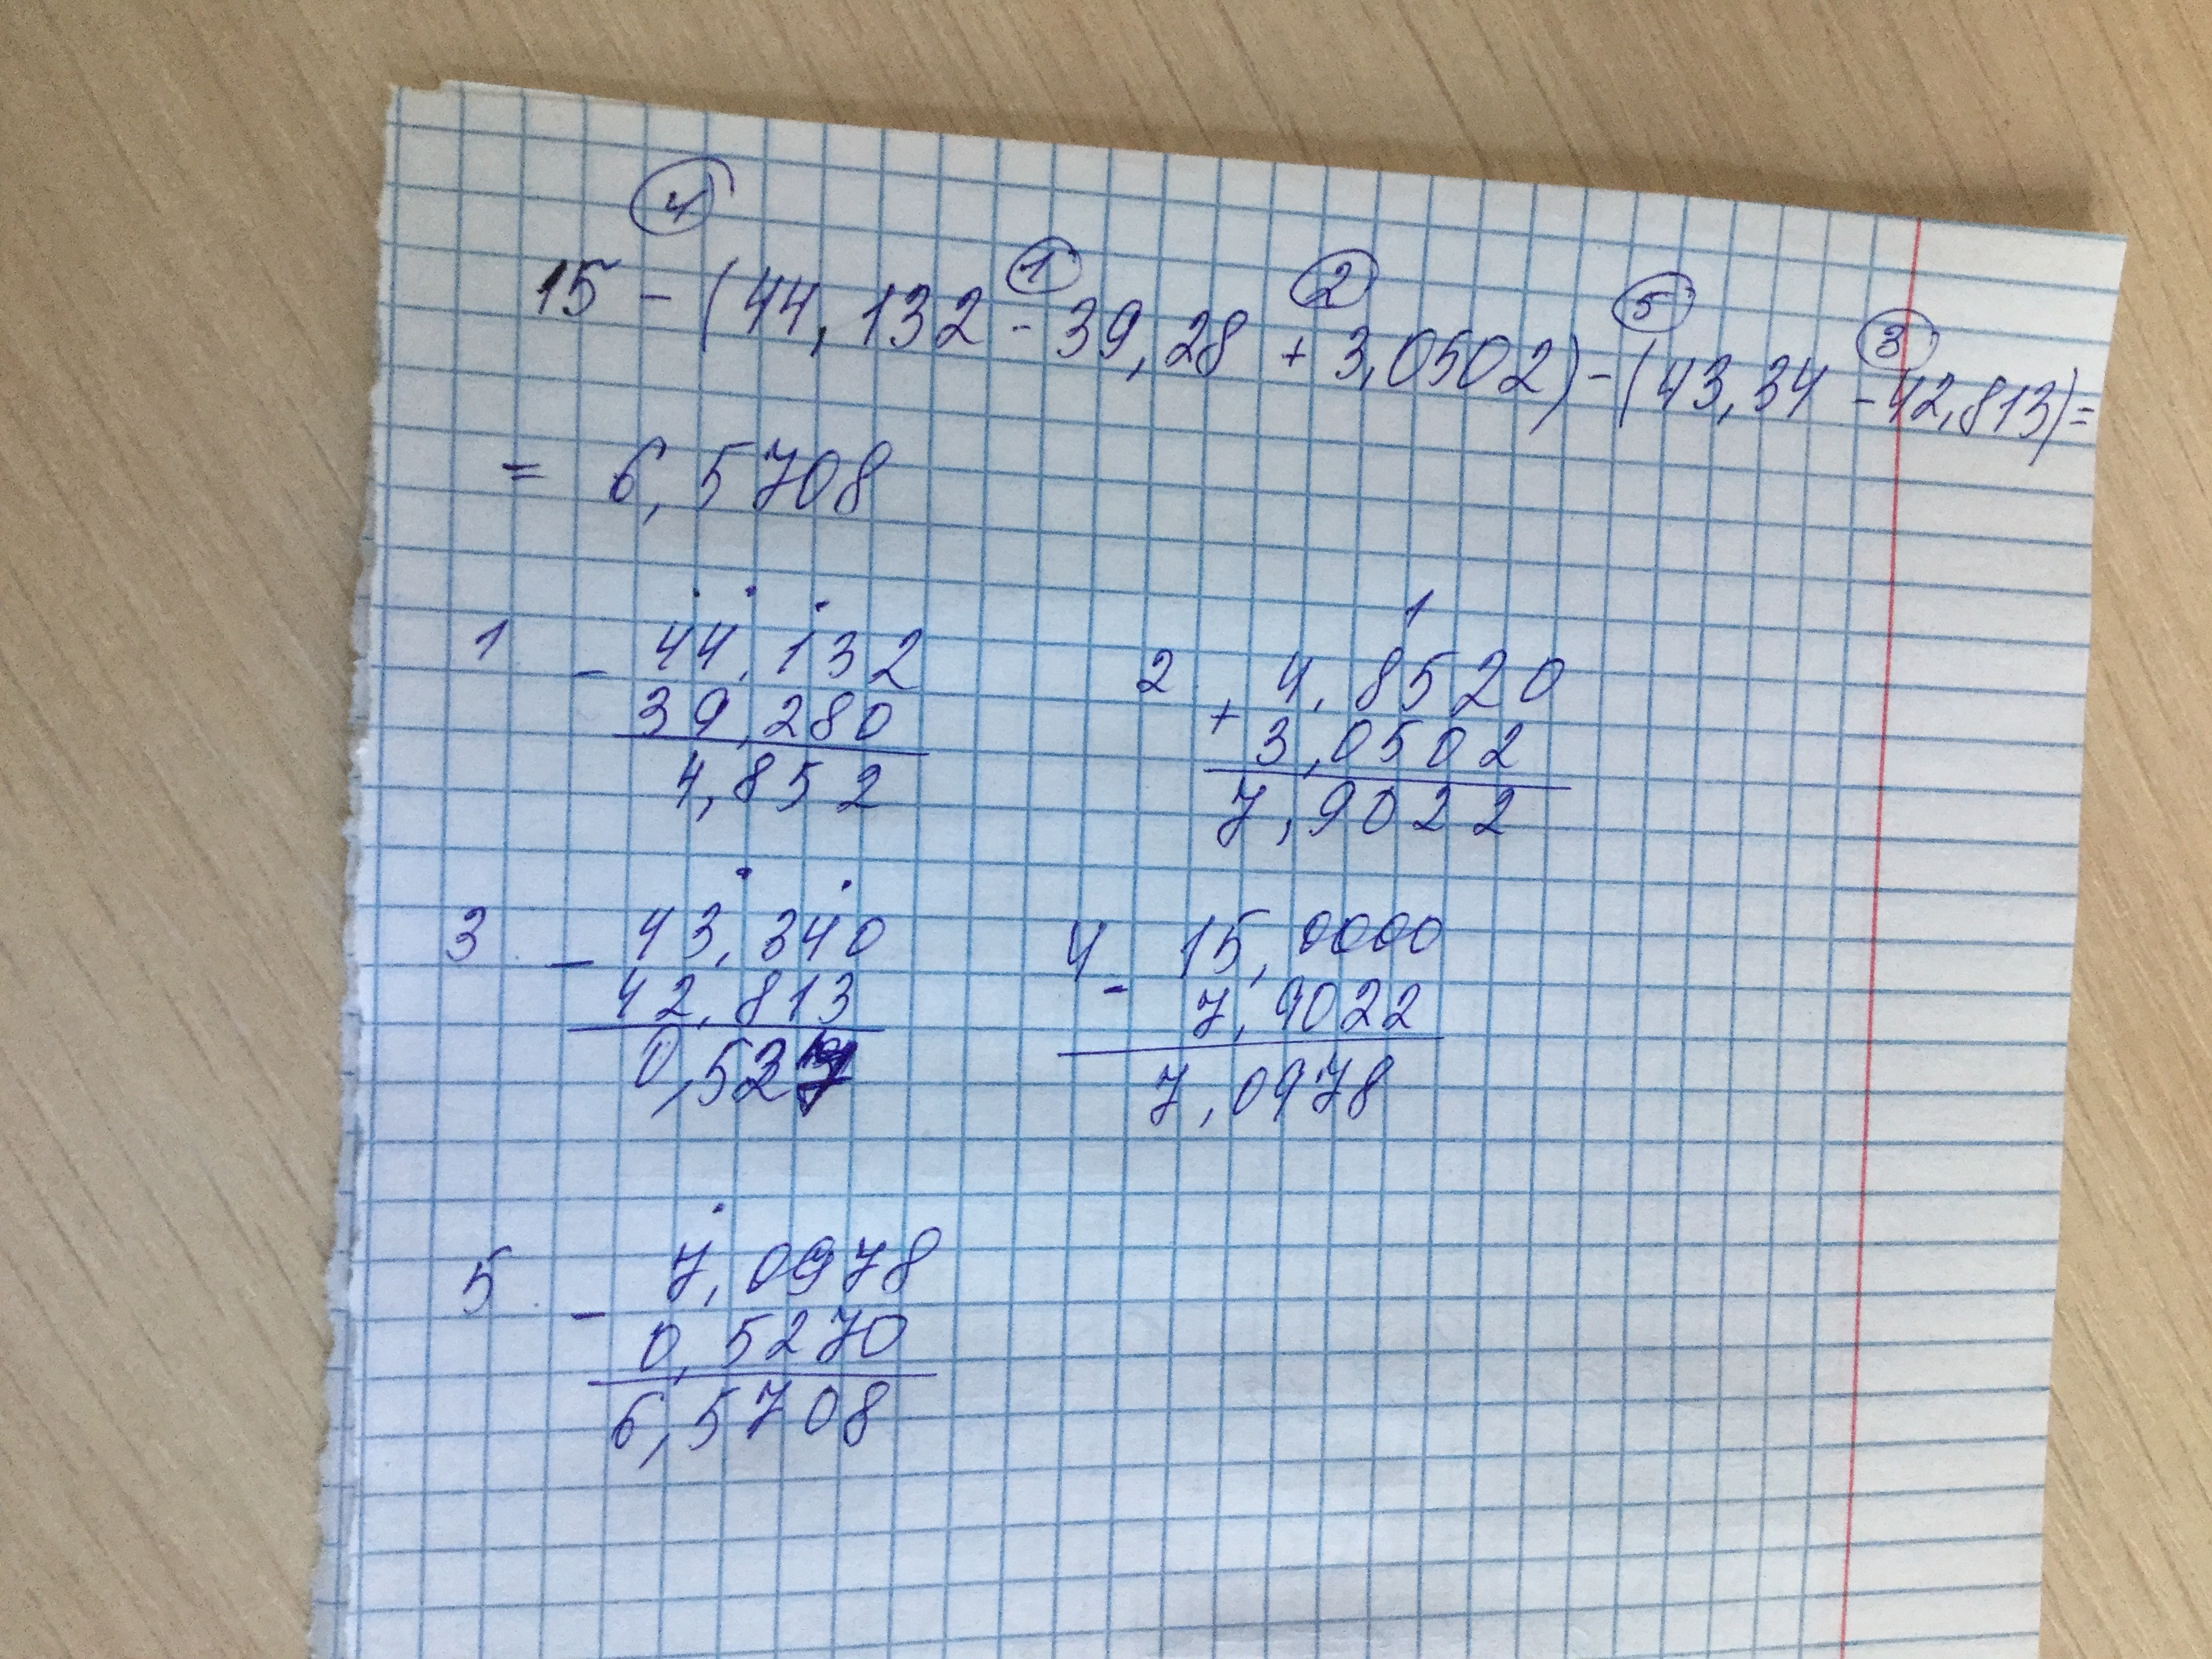 4 1 2 5 3
15 - (44,132 - 39,28 + 3,0502) - (43,34 - 42,813) =
= 6,5708
1 - 44,132
39,280
4,852
2 + 1
4,8520
3,0502
7,9022
3 - 43,340
42,813
0,527
4 - 15,0000
7,9022
7,0978
5 - 7,0978
0,5270
6,5708